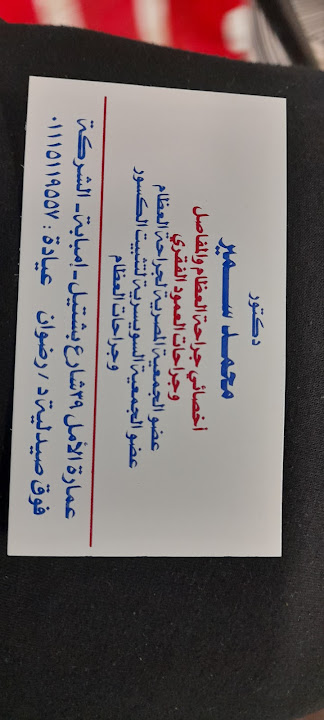 دكتور
محمد سمير
أخصائي جراحة العظام والمفاصل
وجراحات العمود الفقري
عضو الجمعية المصرية لجراحة العظام
عضو الجمعية السويسرية لتثبيت الكسور
وجراحات العظام
عمارة الأمل ٣٩ شارع بشتيل - امبابة - الشركة
فوق صيدلية د / رضوان عيادة : ٠١١١٥١١٩٥٥٧